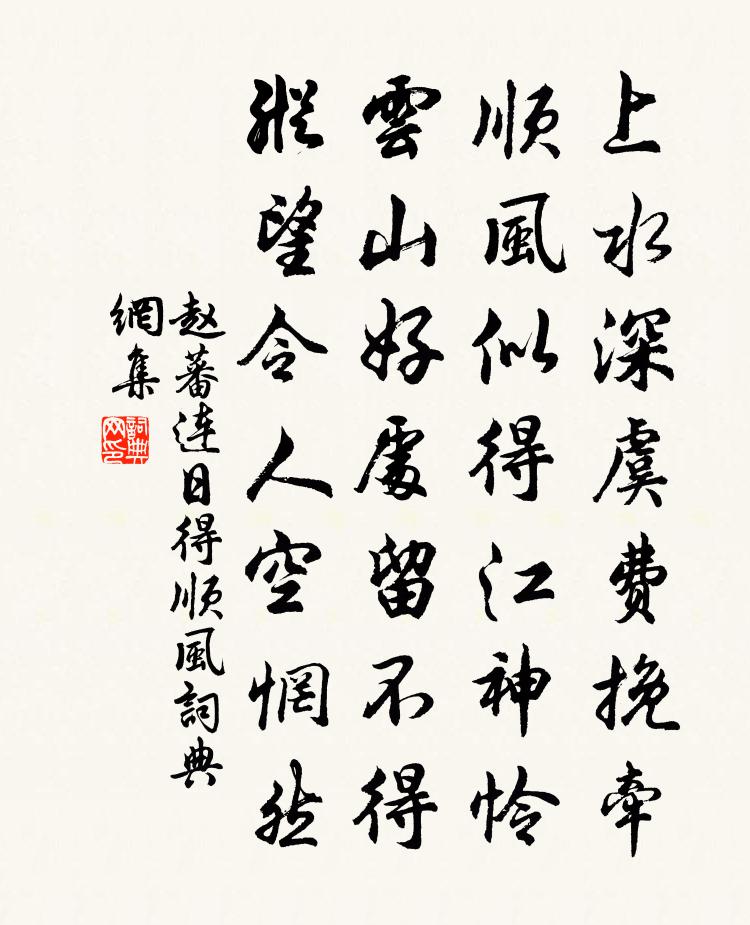 上水深虞費挽牽
順風似得江神憐
雲山好處留不得
縱望令人空惘然
赵蕃连日得順風詞典
網集
詞典網印